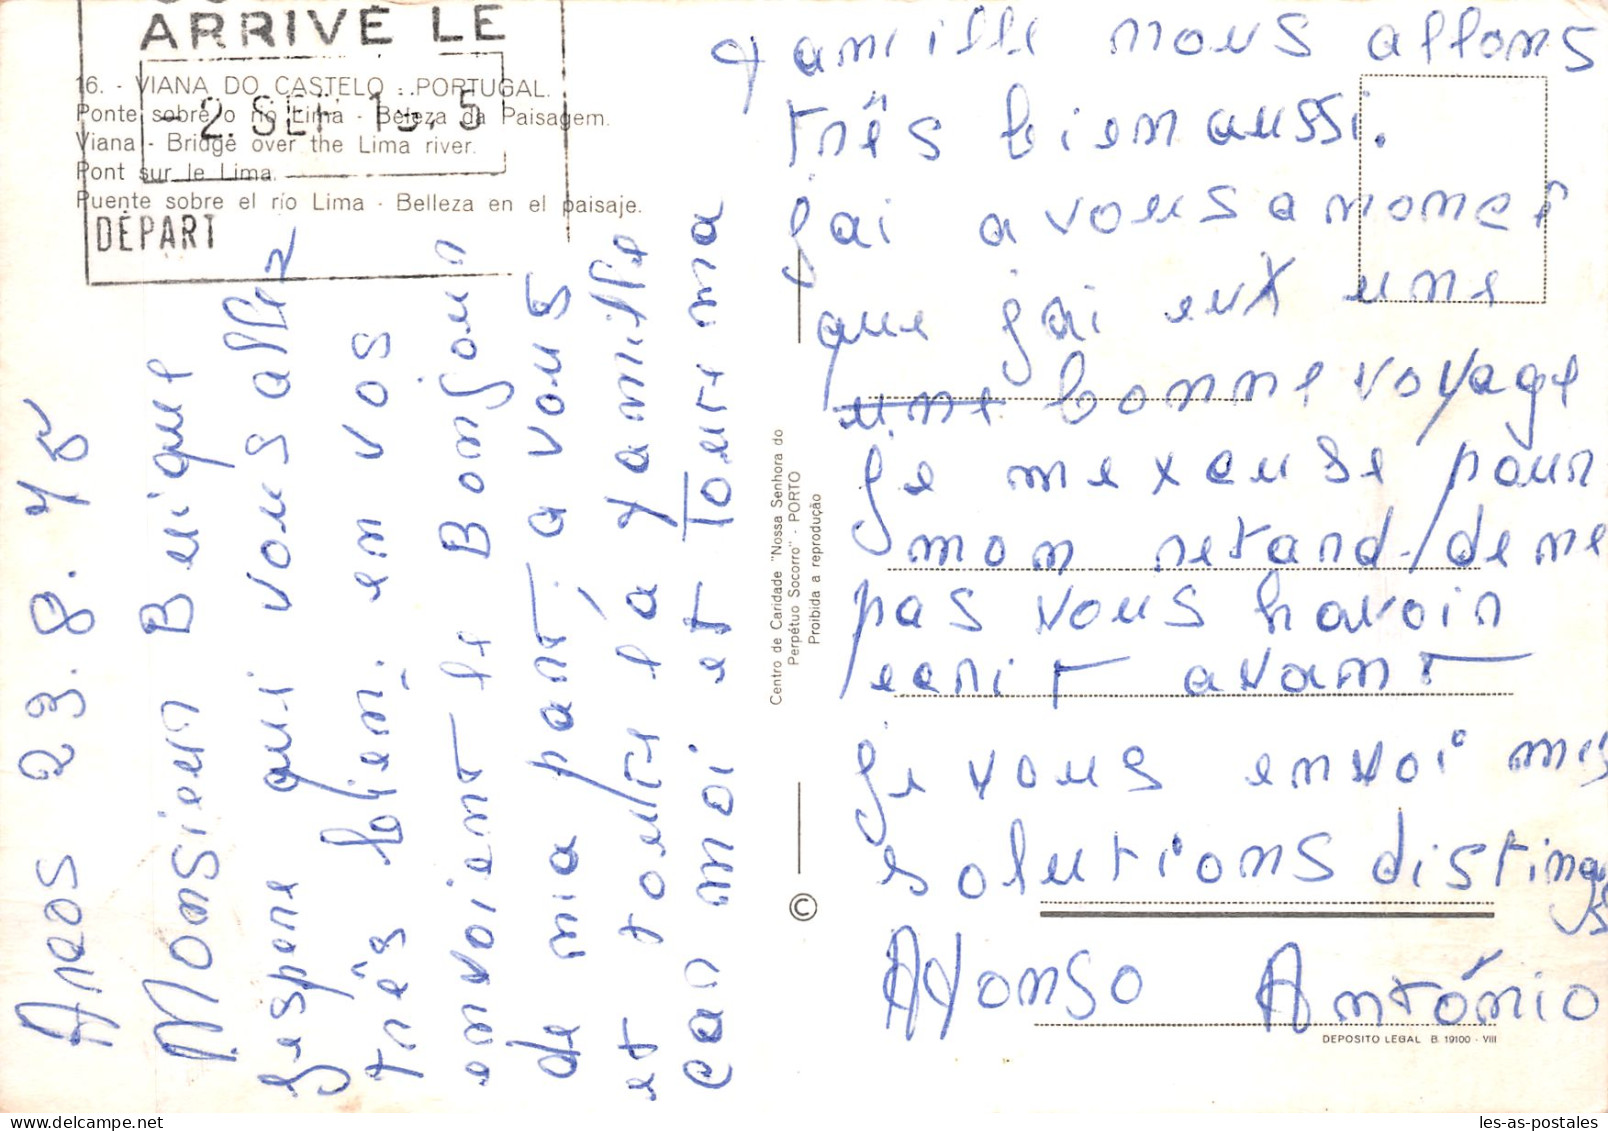 ARRIVÉ LE
- 2. SEP 19. 5
DÉPART
16. - VIANA DO CASTELO - PORTUGAL.
Ponte sobre o rio Lima - Beleza da Paisagem.
Viana - Bridge over the Lima river.
Pont sur le Lima.
Puente sobre el río Lima - Belleza en el paisaje.
Arcos 23.8.75
Monsieur Beuique
Jespere qui vous allez
très bien, en vos
envoient le Bonjour
de ma part. a vous
et toute la yamille
car moi et Toute ma
yamille nous allons
très bien aussi.
jai a vous anoncer
que jai eut une
une bonne voyage
Je mexcuse pour
mon retard/de ne
pas vous havoir
ecrit avant
Je vous envoi mes
solutions distingues
Afonso António
Centro de Caridade "Nossa Senhora do
Perpétuo Socorro" - PORTO
Proibida a reprodução
©
DEPOSITO LEGAL B. 19100 - VIII
les-as-postales